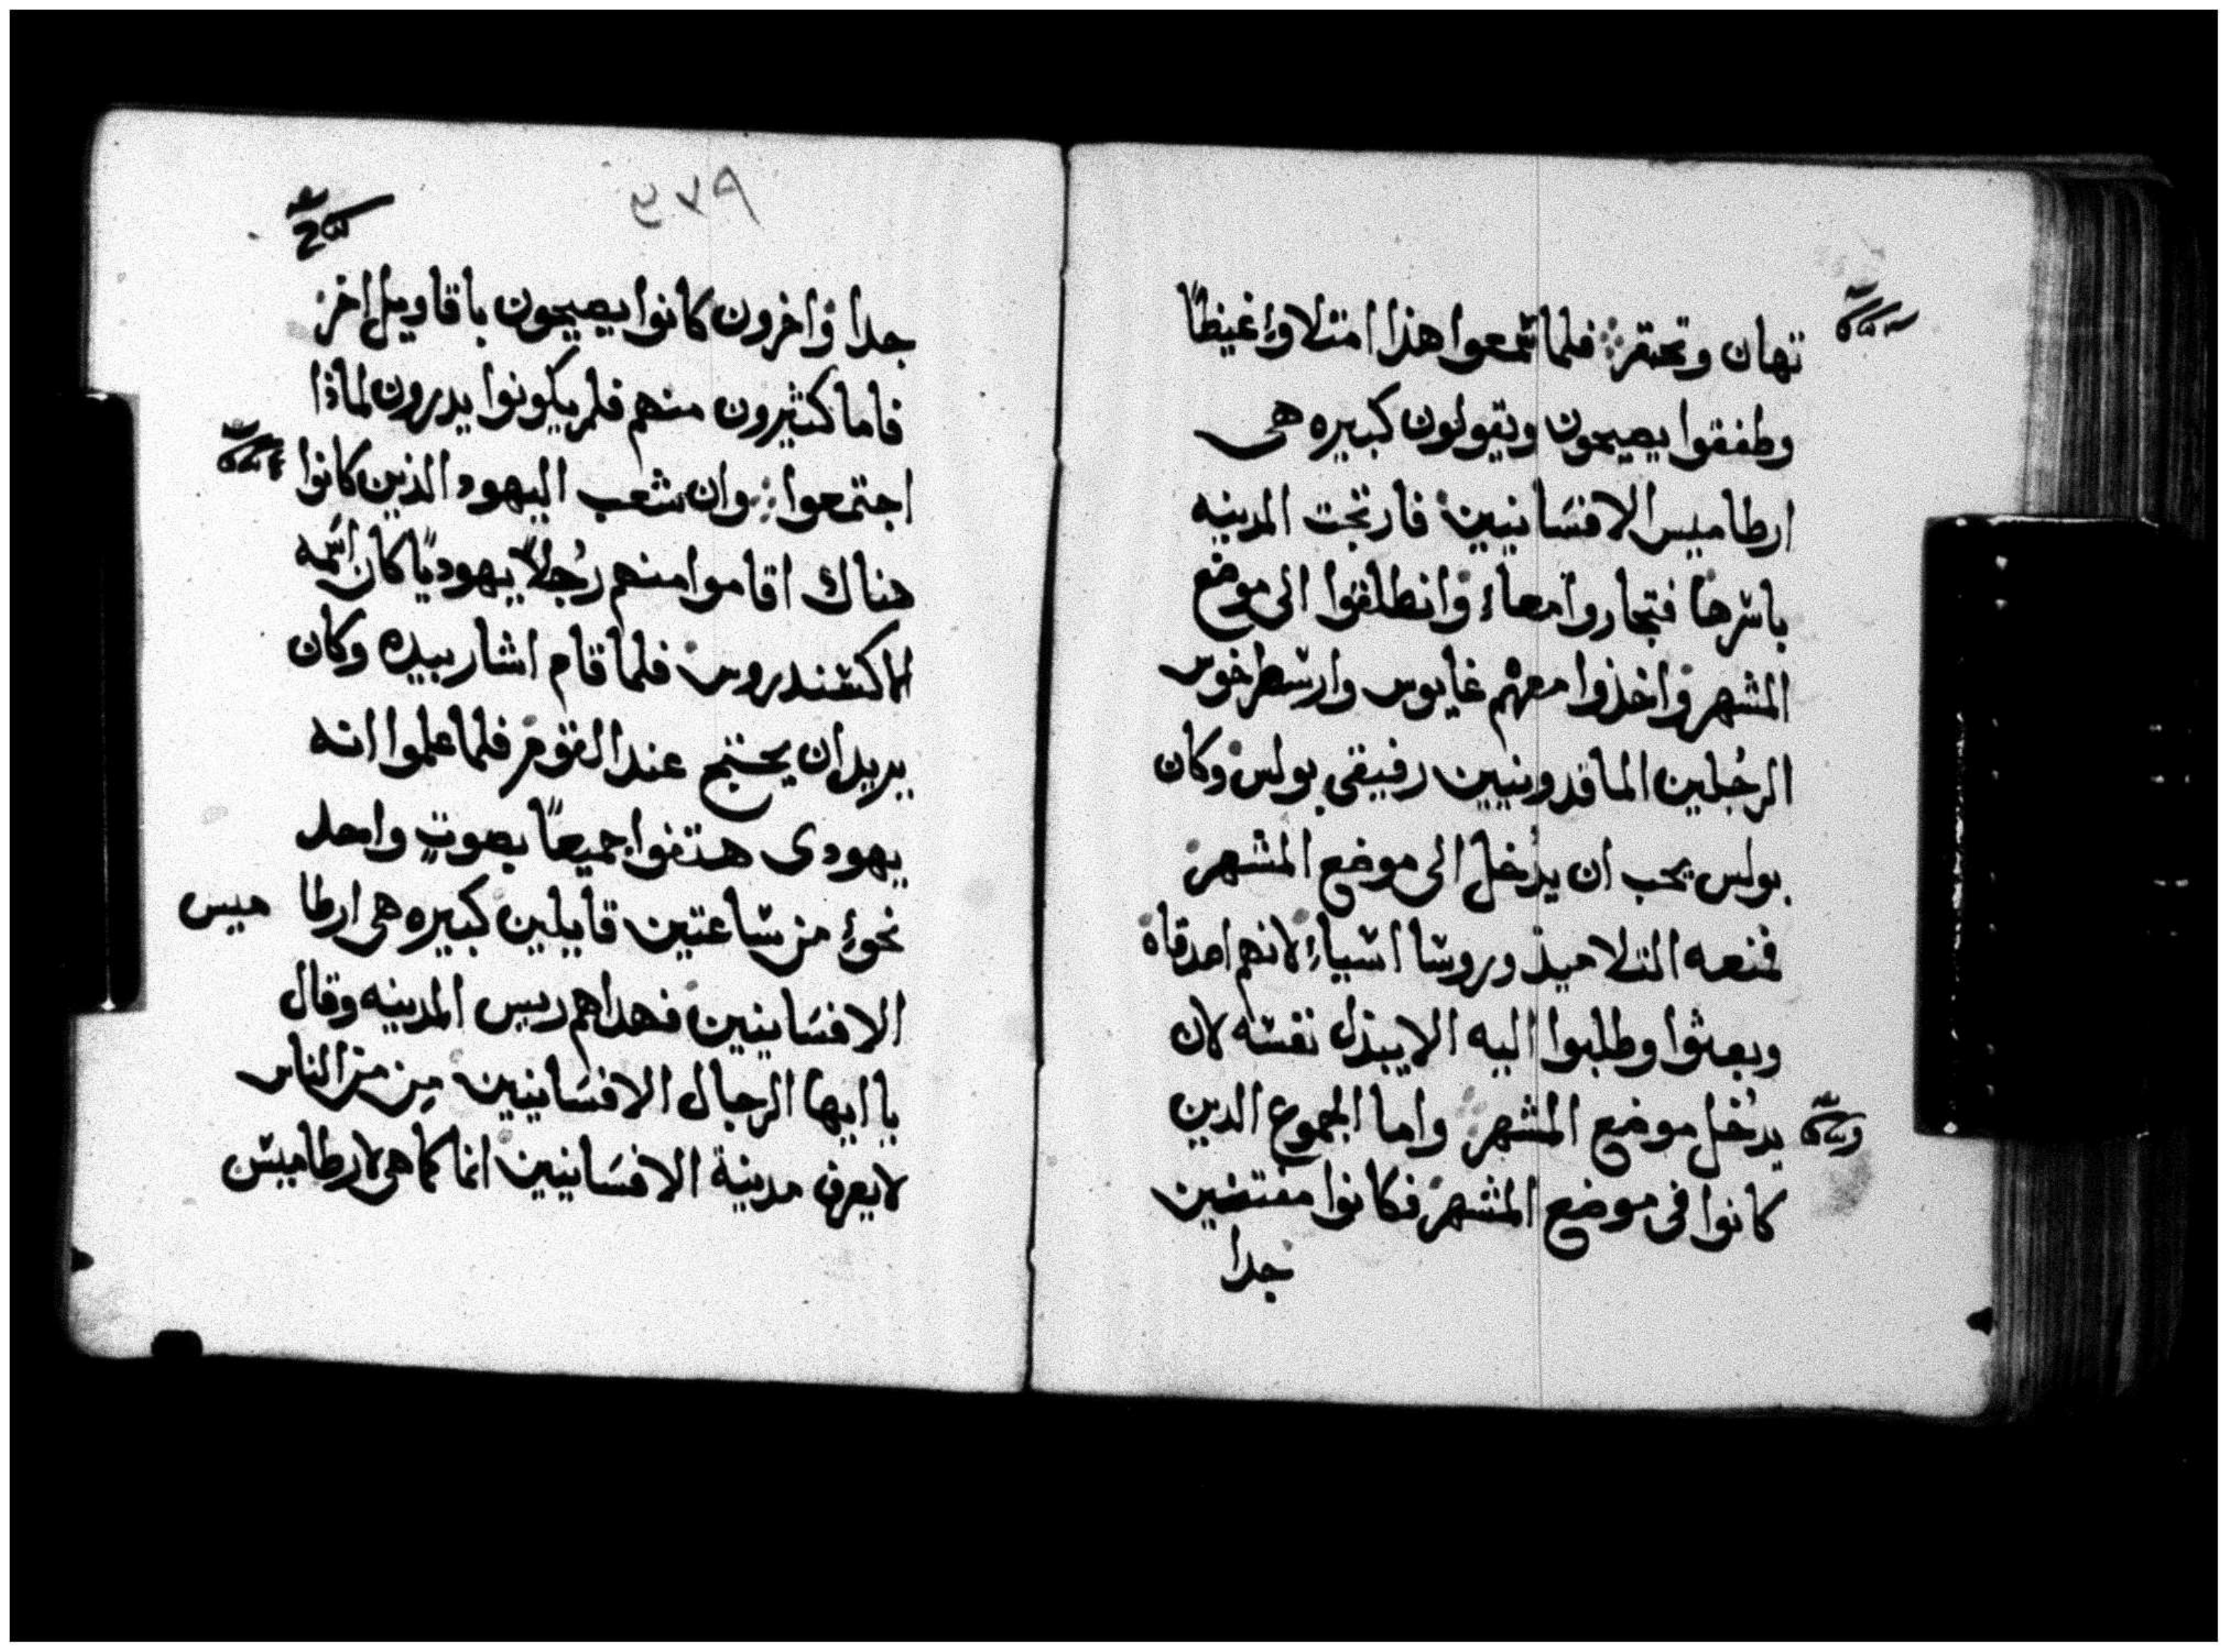 تهان وتحتقر فلما سمعوا هذا امتلاوا غيظًا
وطفقوا يصيحون ويقولون كبيره هى
ارطاميس الافسانيين فارتجت المدينه
باسرها فتجاروا معاء وانطلقوا الى موضع
المشهر واخذوا معهم غايوس وارسطرخوس
الرجُلين الماقدونيين رفيقى بولس وكان
بولس يحب ان يدُخل الى موضع المشهر
فمنعه التلاميذ وروسا اسياء لانهم اصدقاه
وبعثوا وطلبوا اليه الا يبذل نفسه لان
يدخُل موضع المشهر واما الجموع الدين
كانوا فى موضع المشهر فكانوا مفتضين
جدا
جدا واخرون كانوا يصيحون باقاويل اخر
فاما كثيرون منهم فلم يكونوا يدرون لماذا
اجتمعوا وان شعب اليهود الذين كانوا
هناك اقاموا منهم رجُلاً يهوديًا كان اسمه
الاكسندروس فلما قام اشار بيده وكان
يريد ان يحتج عند القوم فلما علموا انه
يهودى هتفوا جميعًا بصوتٍ واحد
نحوء من ساعتين قايلين كبيره هى ارطا ميس
الافسانيين فهداهم ريس المدينه وقال
يا ايها الرجال الافسانيين مِن من الناس
لا يعرف مدينة الافسانيين انها كاهى لارطاميس